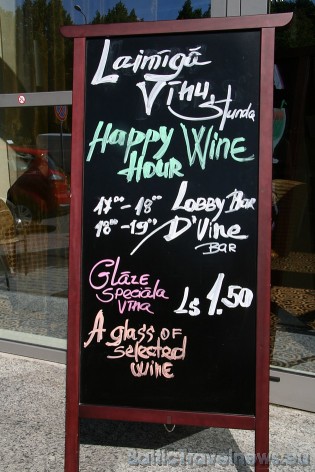 Laimīgā
Vīnu
Stunda
Happy Wine
Hour
17⁰⁰-18⁰⁰ Lobby Bar
18⁰⁰-19⁰⁰ D'Vine
Bar
Glāze
speciāla
vīna
Ls 1.50
A glass of
selected
wine
BalticTravelnews.eu